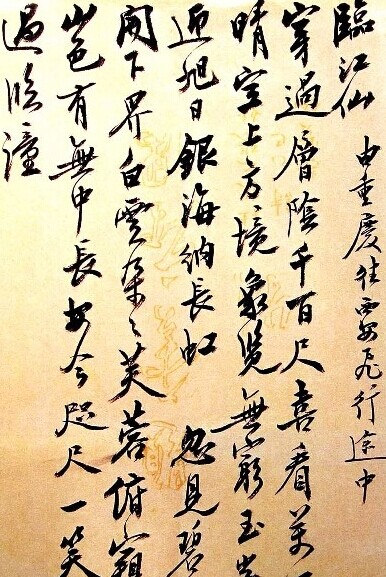 臨江仙 由重慶往西安飛行途中
穿過層陰千百尺喜看萬
晴空上方境象覽無窮玉
迎旭日銀海納長虹 忽見碧
開下界白雲朵々芙蓉俯窺
山色有無中長安今咫尺一笑
過臨潼